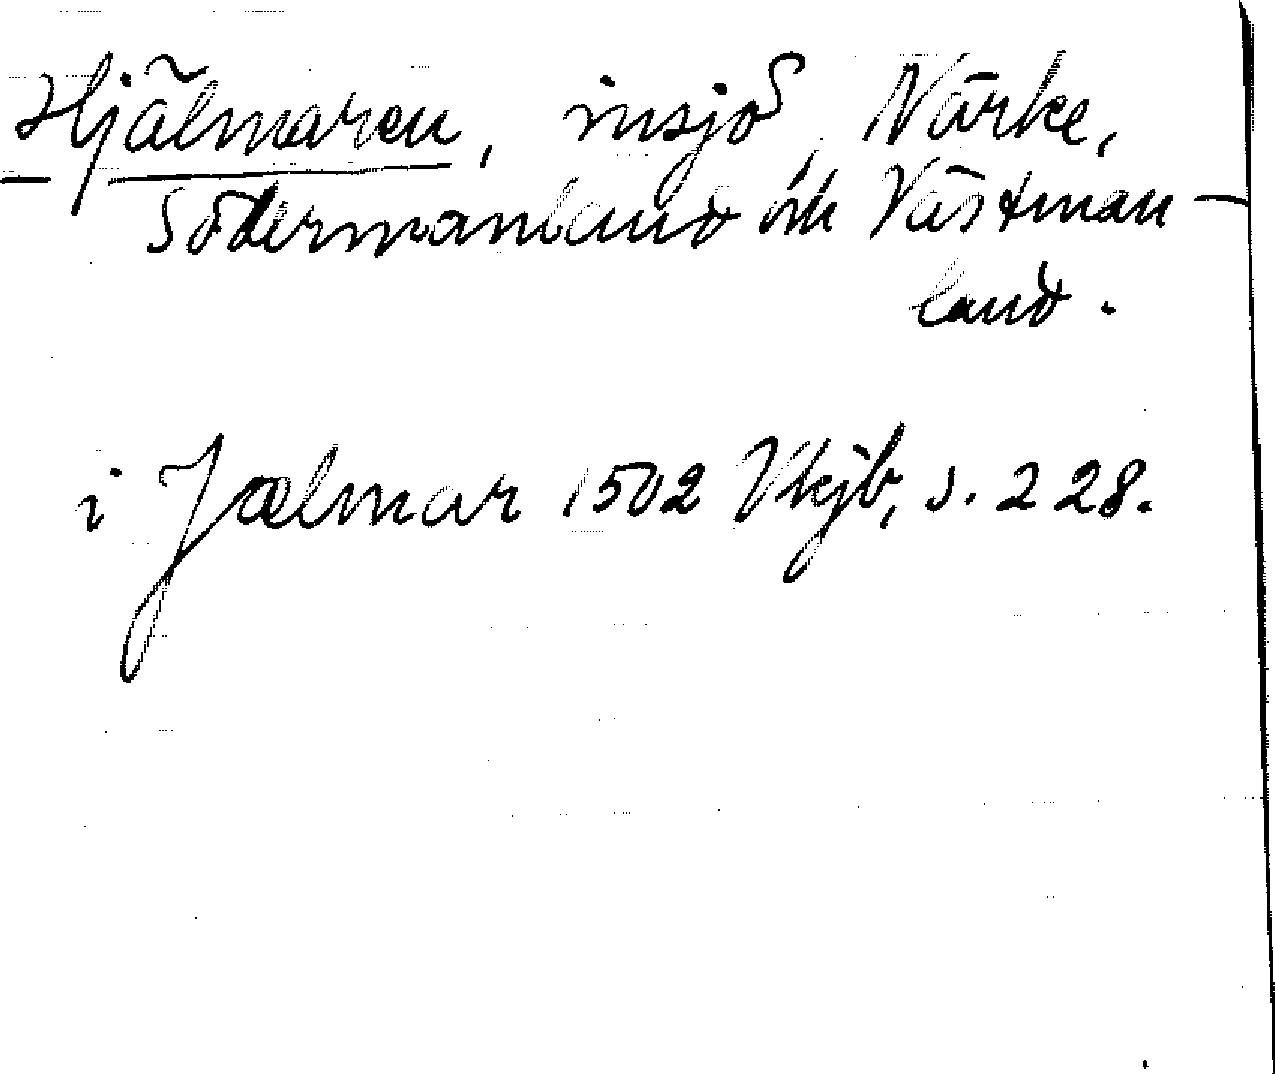 Hjälmaren, insjö, Närke,
Södermanland och Västman-
land.
i Jælmar 1502 Vkjb, s. 228.